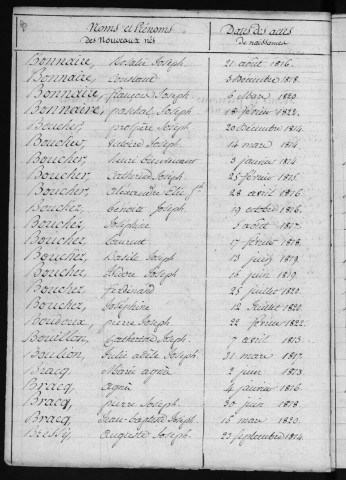 Noms et Prénoms
des Nouveaux nés
Dates des actes
de naissances
Bonnaire, Rosalie Joseph. 21 août 1816.
Bonnaire, Constant 5 Décembre 1818.
Bonnaire, François Joseph. 6 Mars 1820.
Bonnaire, paschal Joseph. 18 février 1822.
Boucher, prospère Joseph. 20 Décembre 1814.
Boucher, Victoire Joseph. 14 mars 1814.
Boucher, henri 3 janvier 1814.
Boucher, Catherine Joseph. 25 février 1815.
Boucher, alexandre 28 avril 1816.
Boucher, benoit Joseph. 19 octobre 1816.
Boucher, Joséphine 5 août 1817.
Boucher, Laurent 17 février 1818.
Boucher, Basile Joseph 13 juin 1819.
Boucher, Isidore Joseph. 16 juin 1819.
Boucher ferdinand 25 juillet 1820.
Boucher, Joséphine 12 Juillet 1820.
Boudoux, pierre Joseph. 22 février 1822.
Bouillon, Catherine Joseph. 7 avril 1813.
Boullon, Julie adèle Joseph. 31 mars 1817.
Bracq Marie agnès 2 juin 1813.
Bracq, agnès 4 janvier 1816.
Bracq, pierre Joseph. 30 juin 1818.
Bracq Jean-baptiste Joseph. 15 mars 1820.
Bressy, auguste Joseph. 23 Septembre 1814.